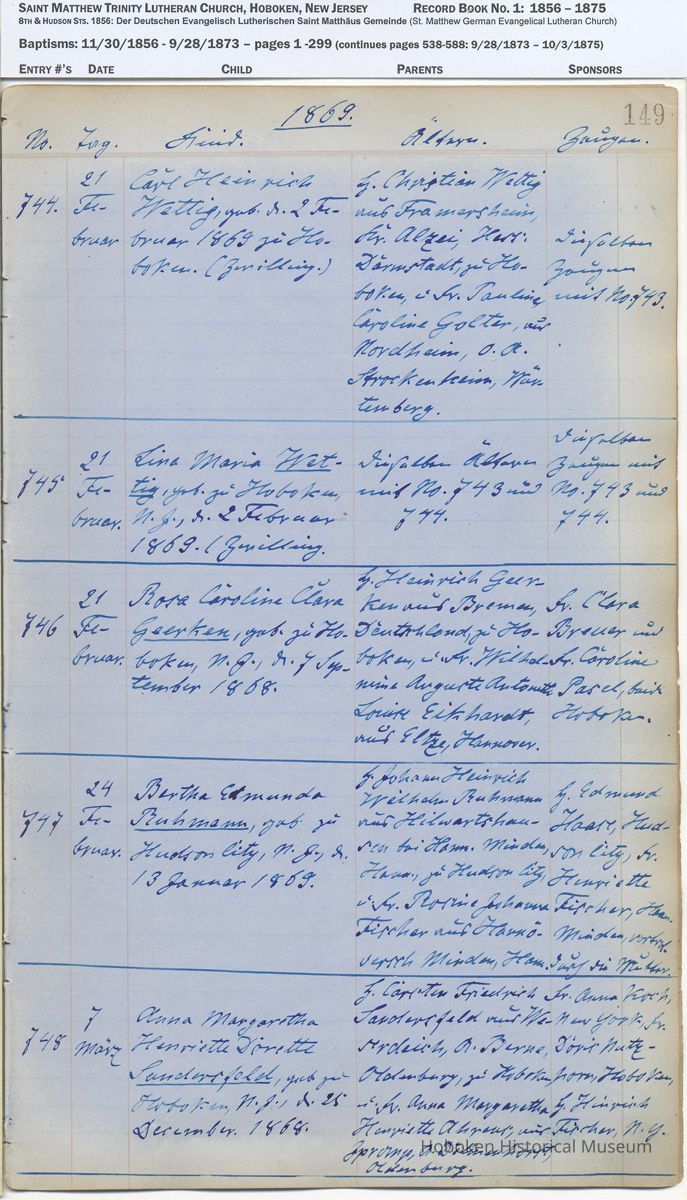 SAINT MATTHEW TRINITY LUTHERAN CHURCH, HOBOKEN, NEW JERSEY RECORD BOOK NO. 1: 1856 – 1875
8TH & HUDSON STS. 1856: Der Deutschen Evangelisch Lutherischen Saint Matthäus Gemeinde (St. Matthew German Evangelical Lutheran Church)
Baptisms: 11/30/1856 - 9/28/1873 – pages 1 -299 (continues pages 538-588: 9/28/1873 – 10/3/1875)
ENTRY #'S DATE CHILD PARENTS SPONSORS
1869. 149
No. Tag. Kind. Ältern. Zeugen.
744.
21
Fe-
bruar
Carl Heinrich
Wettig, geb. d. 2 Fe-
bruar 1869 zu Ho-
boken. (Zwilling.)
H. Christian Wettig
aus Framersheim,
Kr. Alzei, Hess:
Darmstadt, zu Ho-
boken, u Fr. Pauline
Caroline Golter, aus
Nordheim, O. A.
Strockenheim, Wür-
temberg.
Dieselben
Zeugen
mit No. 743.
745
21
Fe-
bruar.
Lina Maria Wet-
tig, geb. zu Hoboken,
N. J., d. 2 Februar
1869. (Zwilling.
Dieselben Ältern
mit No. 743 und
744.
Dieselben
Zeugen mit
No. 743 und
744.
746
21
Fe-
bruar.
Rosa Caroline Clara
Geerken, geb. zu Ho-
boken, N. J., d. 7 Sep-
tember 1868.
H. Heinrich Geer-
ken aus Bremen,
Deutschland, zu Ho-
boken, u. Fr. Wilhel-
mine Auguste Antonette
Louise Eikhardt,
aus Eltze, Hannover.
Fr. Clara
Breuer und
Fr. Caroline
Pasel, beide
Hoboken.
747
24
Fe-
bruar.
Bertha Edmunda
Ruhmann, geb. zu
Hudson City, N. J., d.
13 Januar 1869.
H. Johann Heinrich
Wilhelm Ruhmann
aus Hilwartshau-
sen bei Hann. Minden,
Hann., zu Hudson City,
u. Fr. Rosine Johanna
Fischer aus Hannö-
versch Minden, Hann.
H. Edmund
Haase, Hud-
son City, Fr.
Henriette
Fischer, Hann.
Minden,
durch die Mutter.
748
7
März
Anna Margaretha
Henriette Dorette
Sandersfeld, geb. zu
Hoboken, N. J., d. 25
December. 1868.
H. Carsten Friedrich
Sandersfeld aus We-
serdeich, A. Berne,
Oldenburg, zu Hoboken,
u. Fr. Anna Margaretha
Henriette Ahrens, aus
Oldenburg.
Fr. Anna Koch,
New York, Fr.
Doris Nutz-
horn, Hoboken,
H. Hinrich
Fischer, N. Y.
Hoboken Historical Museum